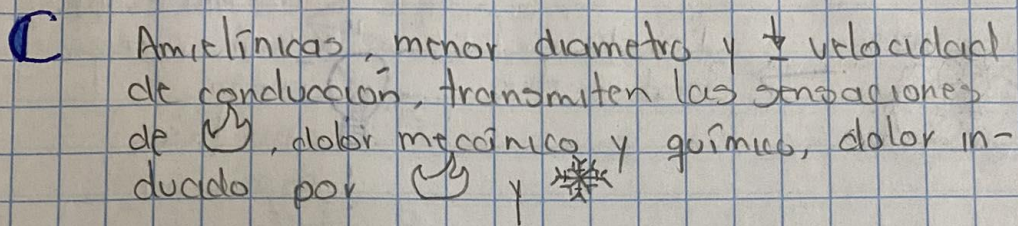 C Amielínicas, menor diametro y ↓ velocidad
de conducción, transmiten las sensaciones
de , dolor mecánico y químico, dolor in-
ducido por y